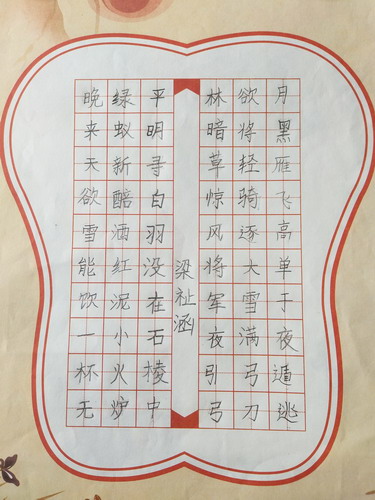 月黑雁飞高单于夜遁逃
欲将轻骑逐大雪满弓刀
林暗草惊风将军夜引弓
梁祉涵
平明寻白羽没在石棱中
绿蚁新醅酒红泥小火炉
晚来天欲雪能饮一杯无